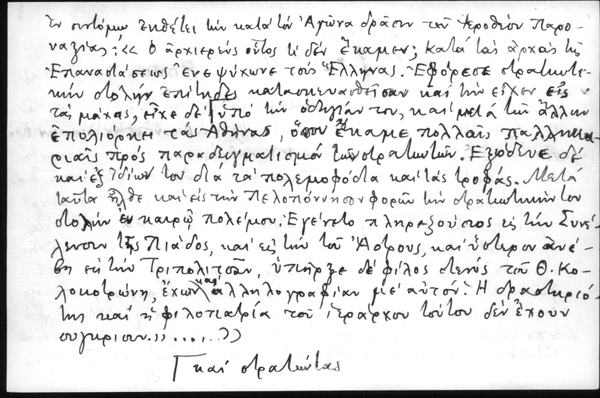 Ἐν συντόμῳ ἐκθέτει τὴν κατὰ τὸν Ἀγῶνα δρᾶσιν τοῦ Ἱεροθέου Παρο-
ναξίας: «Ὁ ἀρχιερεὺς οὗτος τί δὲν ἔκαμεν; Κατὰ τὰς ἀρχὰς τῆς
Ἐπαναστάσεως ἐνεψύχωνε τοὺς Ἕλληνας. Ἐφόρεσε στρατιωτι-
κὴν στολὴν ἐπίτηδες κατασκευασθεῖσαν καὶ τὴν εἶχεν εἰς
τὰς μάχας, εἶχε δὲ Γ ὑπὸ τὴν ὁδηγίαν του, καὶ μετὰ τῶν ἄλλων
ἐπολιόρκει τὰς Ἀθήνας, ὅπου ἔκαμε πολλαῖς παλληκα-
ριαῖς πρὸς παραδειγματισμὸν τῶν στρατιωτῶν. Ἐξόδευε δὲ
καὶ ἐξ ἰδίων του διὰ τὰ πολεμοφόδια καὶ τὰς τροφάς. Μετὰ
ταῦτα ἦλθε καὶ εἰς τὴν Πελοπόννησον φορῶν τὴν στρατιωτικήν του
στολὴν ἐν καιρῷ πολέμου. Ἐγένετο πληρεξούσιος εἰς τὴν Συνέ-
λευσιν τῆς Πιάδος, καὶ εἰς τὴν τοῦ Ἄστρους, καὶ ὕστερον ἀνέ-
βη εἰς τὴν Τριπολιτσᾶν, ὑπῆρξε δὲ φίλος στενὸς τοῦ Θ. Κο-
λοκοτρώνη, ἔχων καὶ ἀλληλογραφίαν μὲ αὐτόν. Ἡ δραστηριό-
της καὶ ἡ φιλοπατρία τοῦ ἱεράρχου τούτου δὲν ἔχουν
σύγκρισιν»......»
Γ καὶ στρατιώτας